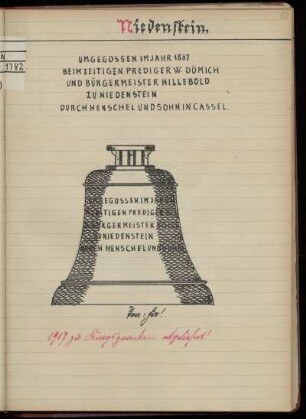 Niedenstein.
N
1782
UMGEGOSSEN IM JAHR 1837
BEIM ZEITIGEN PREDIGER W. DÖMICH
UND BÜRGERMEISTER HILLEBOLD
ZU NIEDENSTEIN
DURCH HENSCHEL UND SOHN IN CASSEL.
GEGOSSEN IM JA
EITIGEN PREDIGER
ÜRGERMEISTER
NIEDENSTEIN
CH HENSCHEL UND
Ton:
1917 zu Kriegszwecken abgeliefert!